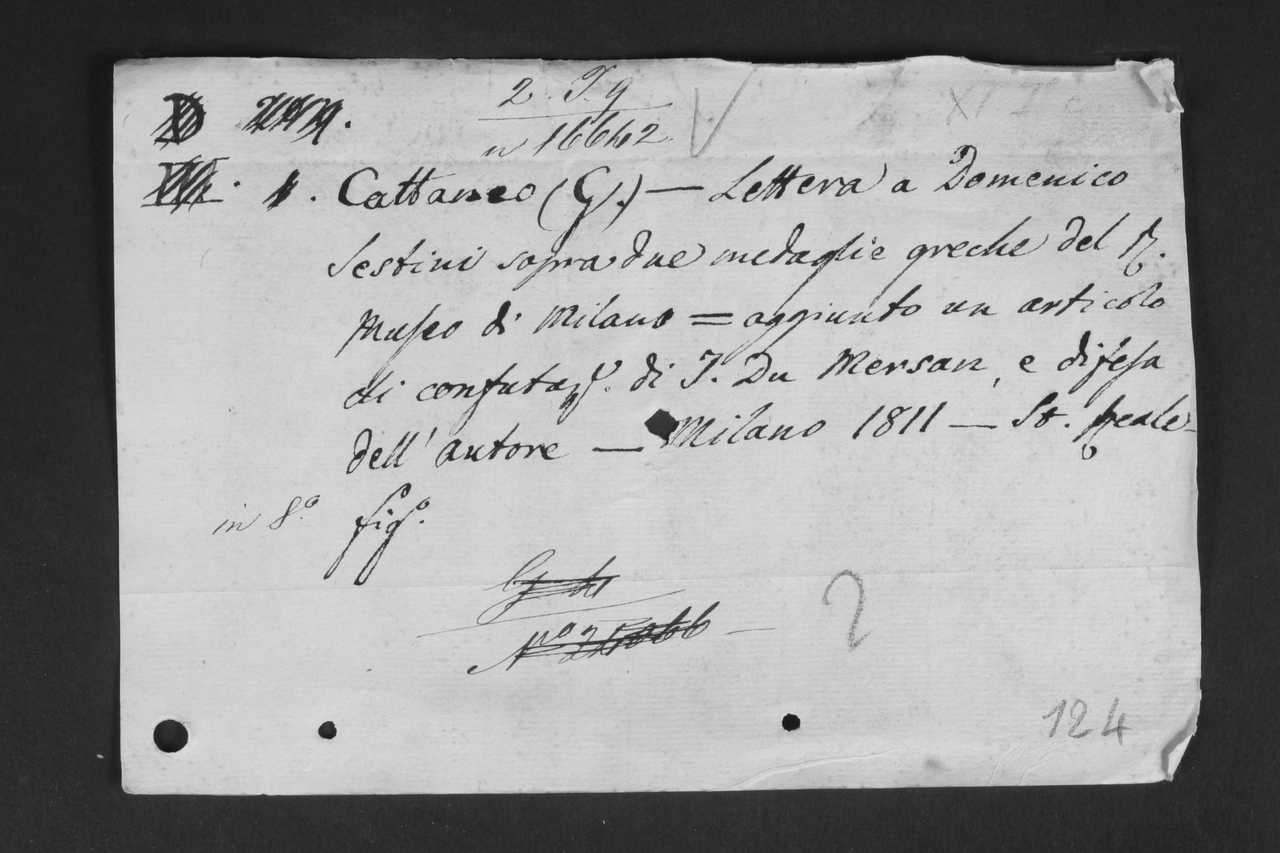 2. T. 9
n 16642
1. Cattaneo (G.) — Lettera a Domenico
Sestini sopra due medaglie greche del R.
Museo di Milano = aggiunto un articolo
di confutaze. di T. Du Mersan, e difesa
dell'autore — Milano 1811 — St. Reale
in 8.o figo.
No
2
124